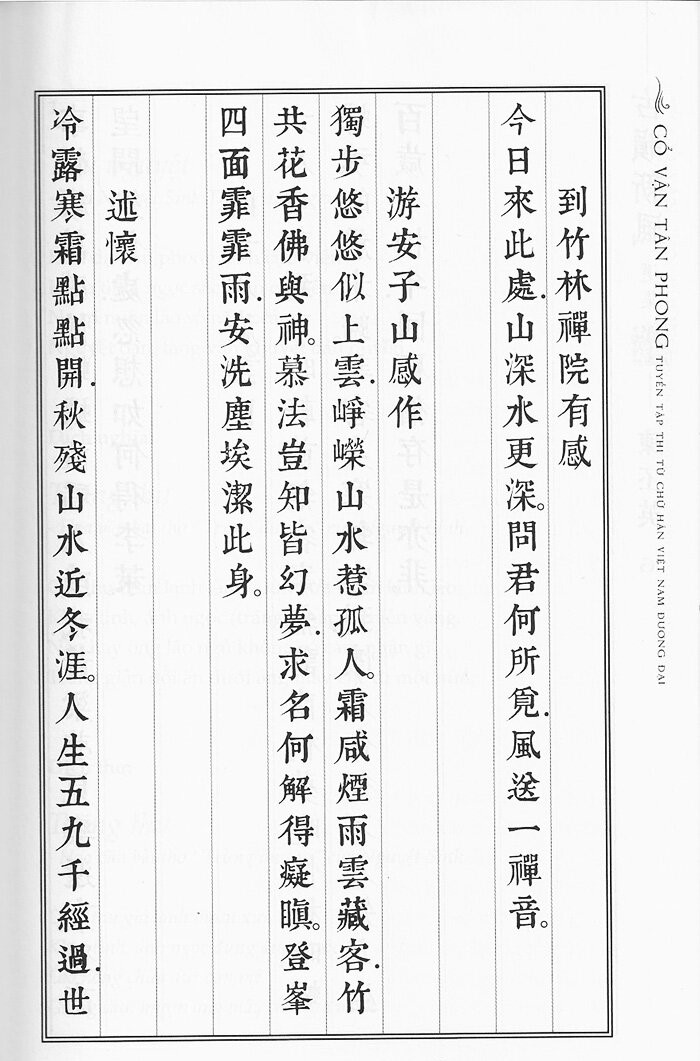 到竹林禪院有感
今日來此處.山深水更深。問君何所覓.風送一禪音。
游安子山感作
獨步悠悠似上雲.崢嶸山水惹孤人。霜咸煙雨雲藏客.竹
共花香佛與神。慕法豈知皆幻夢.求名何解得癡瞋。登峯
四面霏霏雨.安洗塵埃潔此身。
述懷
冷露寒霜點點開.秋殘山水近冬涯。人生五九千經過.世
CỔ VẬN TÂN PHONG TUYỂN TẬP THI TỪ CHỮ HÁN VIỆT NAM ĐƯƠNG ĐẠI